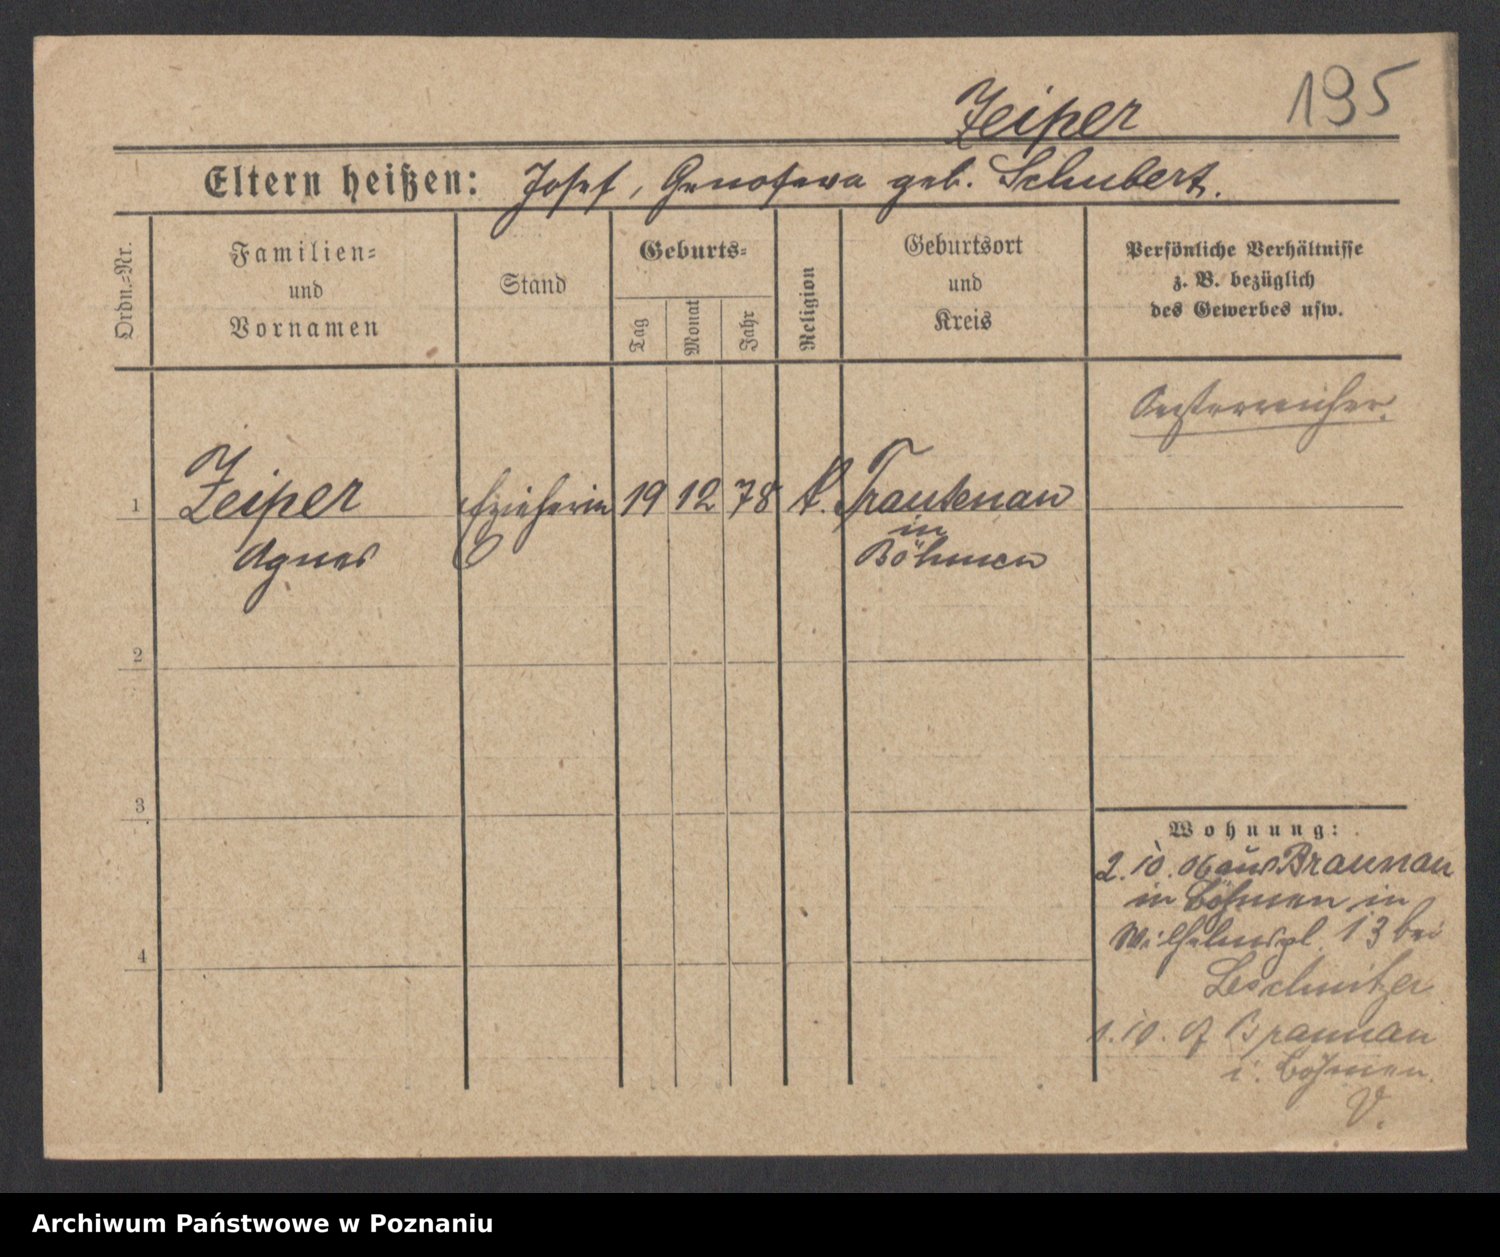 Zeiper 195
Eltern heißen: Josef, Genofeva geb. Schubert.
Ordn.-Nr.
Familien-
und
Vornamen
Stand
Geburts-
Tag
Monat
Jahr
Religion
Geburtsort
und
Kreis
Persönliche Verhältnisse
z. B. bezüglich
des Gewerbes usw.
Oesterreicher.
1 Zeiper Erzieherin 19 12 78 k. Trautenau
Agnes
in
Böhmen
2
3
4
Wohnung:
2. 10. 06 aus Braunau
in Böhmen in
Wilhelmspl. 13 bei
Leschnitzer
1. 10. 07 Braunau
i. Böhmen.
V.
Archiwum Państwowe w Poznaniu